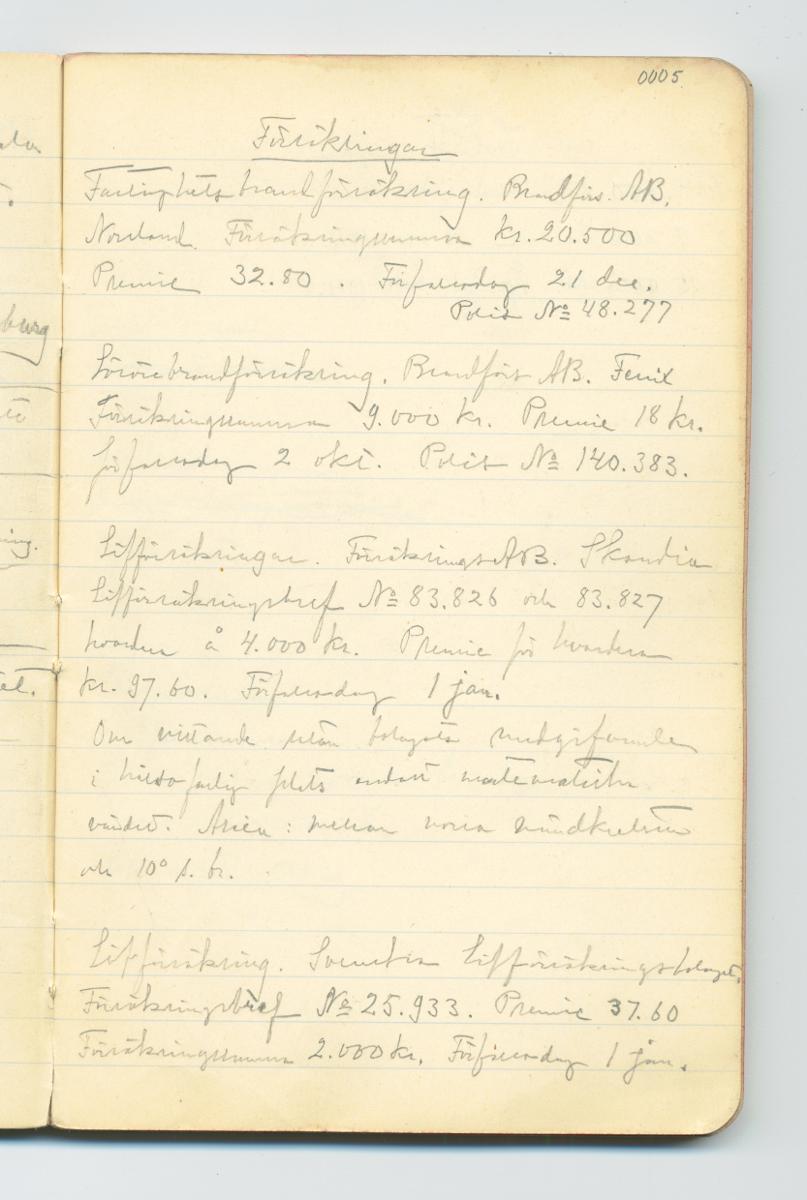 0005
Försäkringar
Fastighetsbrandförsäkring. Brandförs. AB.
Norland. Försäkringssumma kr. 20.500
Premie 32.80. Förfallodag 21 dec.
Polis № 48.277
Lösörebrandförsäkring. Brandförs AB. Fenix
Försäkringssumma 9.000 kr. Premie 18 kr.
Förfallodag 2 okt. Polis № 140.383.
Lifförsäkringar. Försäkrings AB. Skandia
Lifförsäkringsbref № 83.826 och 83.827
hvardera å 4.000 kr. Premie för hvardera
kr. 97.60. Förfallodag 1 jan.
Om vistande utan bolagets medgifvande
i hälsofarlig plats endast matematiska
värdet. Asien: mellan norra vändkretsen
och 10° s. br.
Lifförsäkring. Svenska Lifförsäkringsbolaget.
Försäkringsbref № 25.933. Premie 37.60
Försäkringssumma 2.000 kr. Förfallodag 1 jan.
burg
ing.